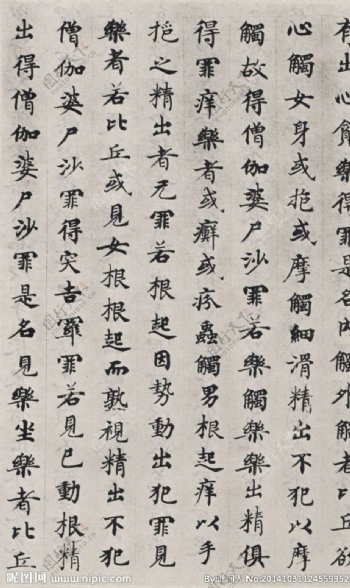 有出心貪得罪是名内觸外觸者比丘欲
心觸女身或抱或摩觸細滑精出不犯以摩
觸故得僧伽婆尸沙罪若樂觸樂樂出精俱
得罪痒樂者或癬或疥蟲觸男根起痒以手
抱之精出者无罪若根起因勢動出犯罪見
樂者若比丘或見女根根起而熟視精出不犯
僧伽婆尸沙罪得突吉羅罪若見已動根精
出得僧伽婆尸沙罪是名見樂坐樂者比丘
昵图网 www.nipic.com
No:20141031124559952